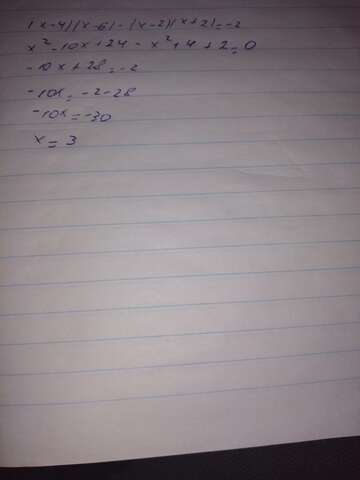 (x-4)(x-6)-(x-2)(x+2)=-2
x²-10x+24-x²+4+2=0
-10x+28=-2
-10x=-2-28
-10x=-30
x=3